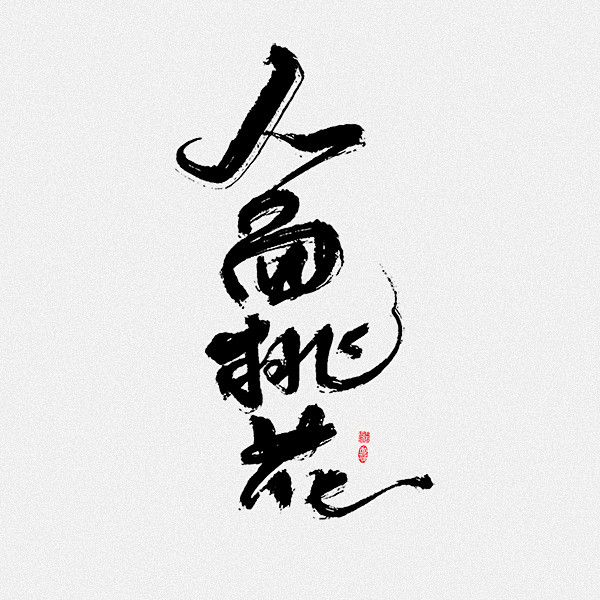 人面桃花